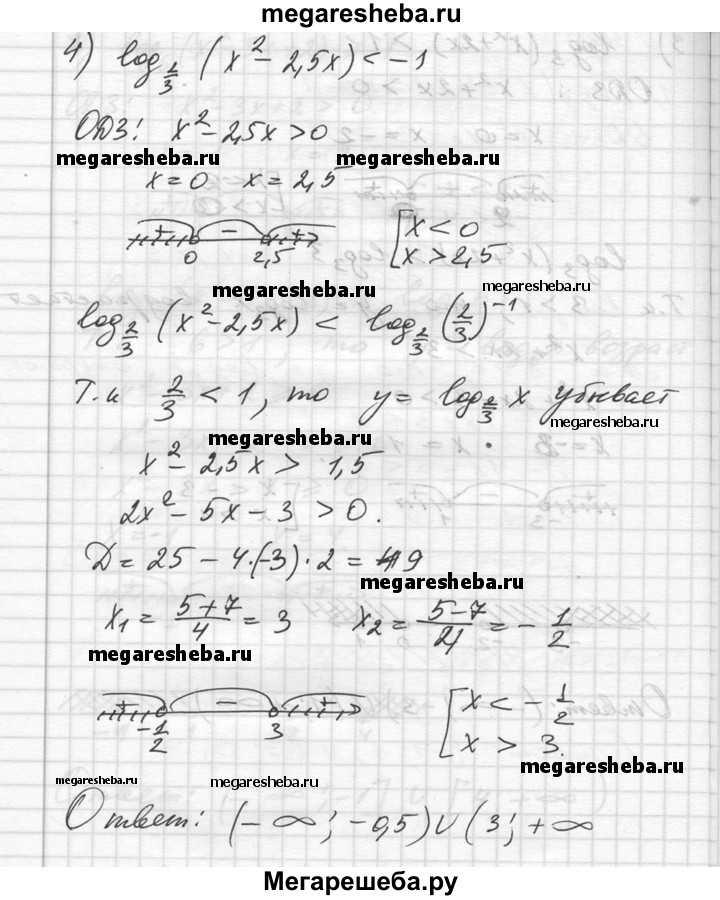 megaresheba.ru
4) log_{2/3} (x² - 2,5x) < -1
ОДЗ: x² - 2,5x > 0
megaresheba.ru megaresheba.ru
x = 0 x = 2,5
+ - +
0 2,5
[x < 0
x > 2,5
megaresheba.ru megaresheba.ru
log_{2/3} (x² - 2,5x) < log_{2/3} (2/3)^{-1}
Т.к 2/3 < 1, то y = log_{2/3} x убывает
megaresheba.ru megaresheba.ru
x² - 2,5x > 1,5
2x² - 5x - 3 > 0.
Д = 25 - 4·(-3)·2 = 49
megaresheba.ru
x₁ = (5+7)/4 = 3 x₂ = (5-7)/4 = - 1/2
megaresheba.ru
+ - +
-1/2 3
[x < - 1/2
x > 3.
megaresheba.ru megaresheba.ru megaresheba.ru
Ответ: (-∞; -0,5) ∪ (3; +∞
Мегарешеба.ру